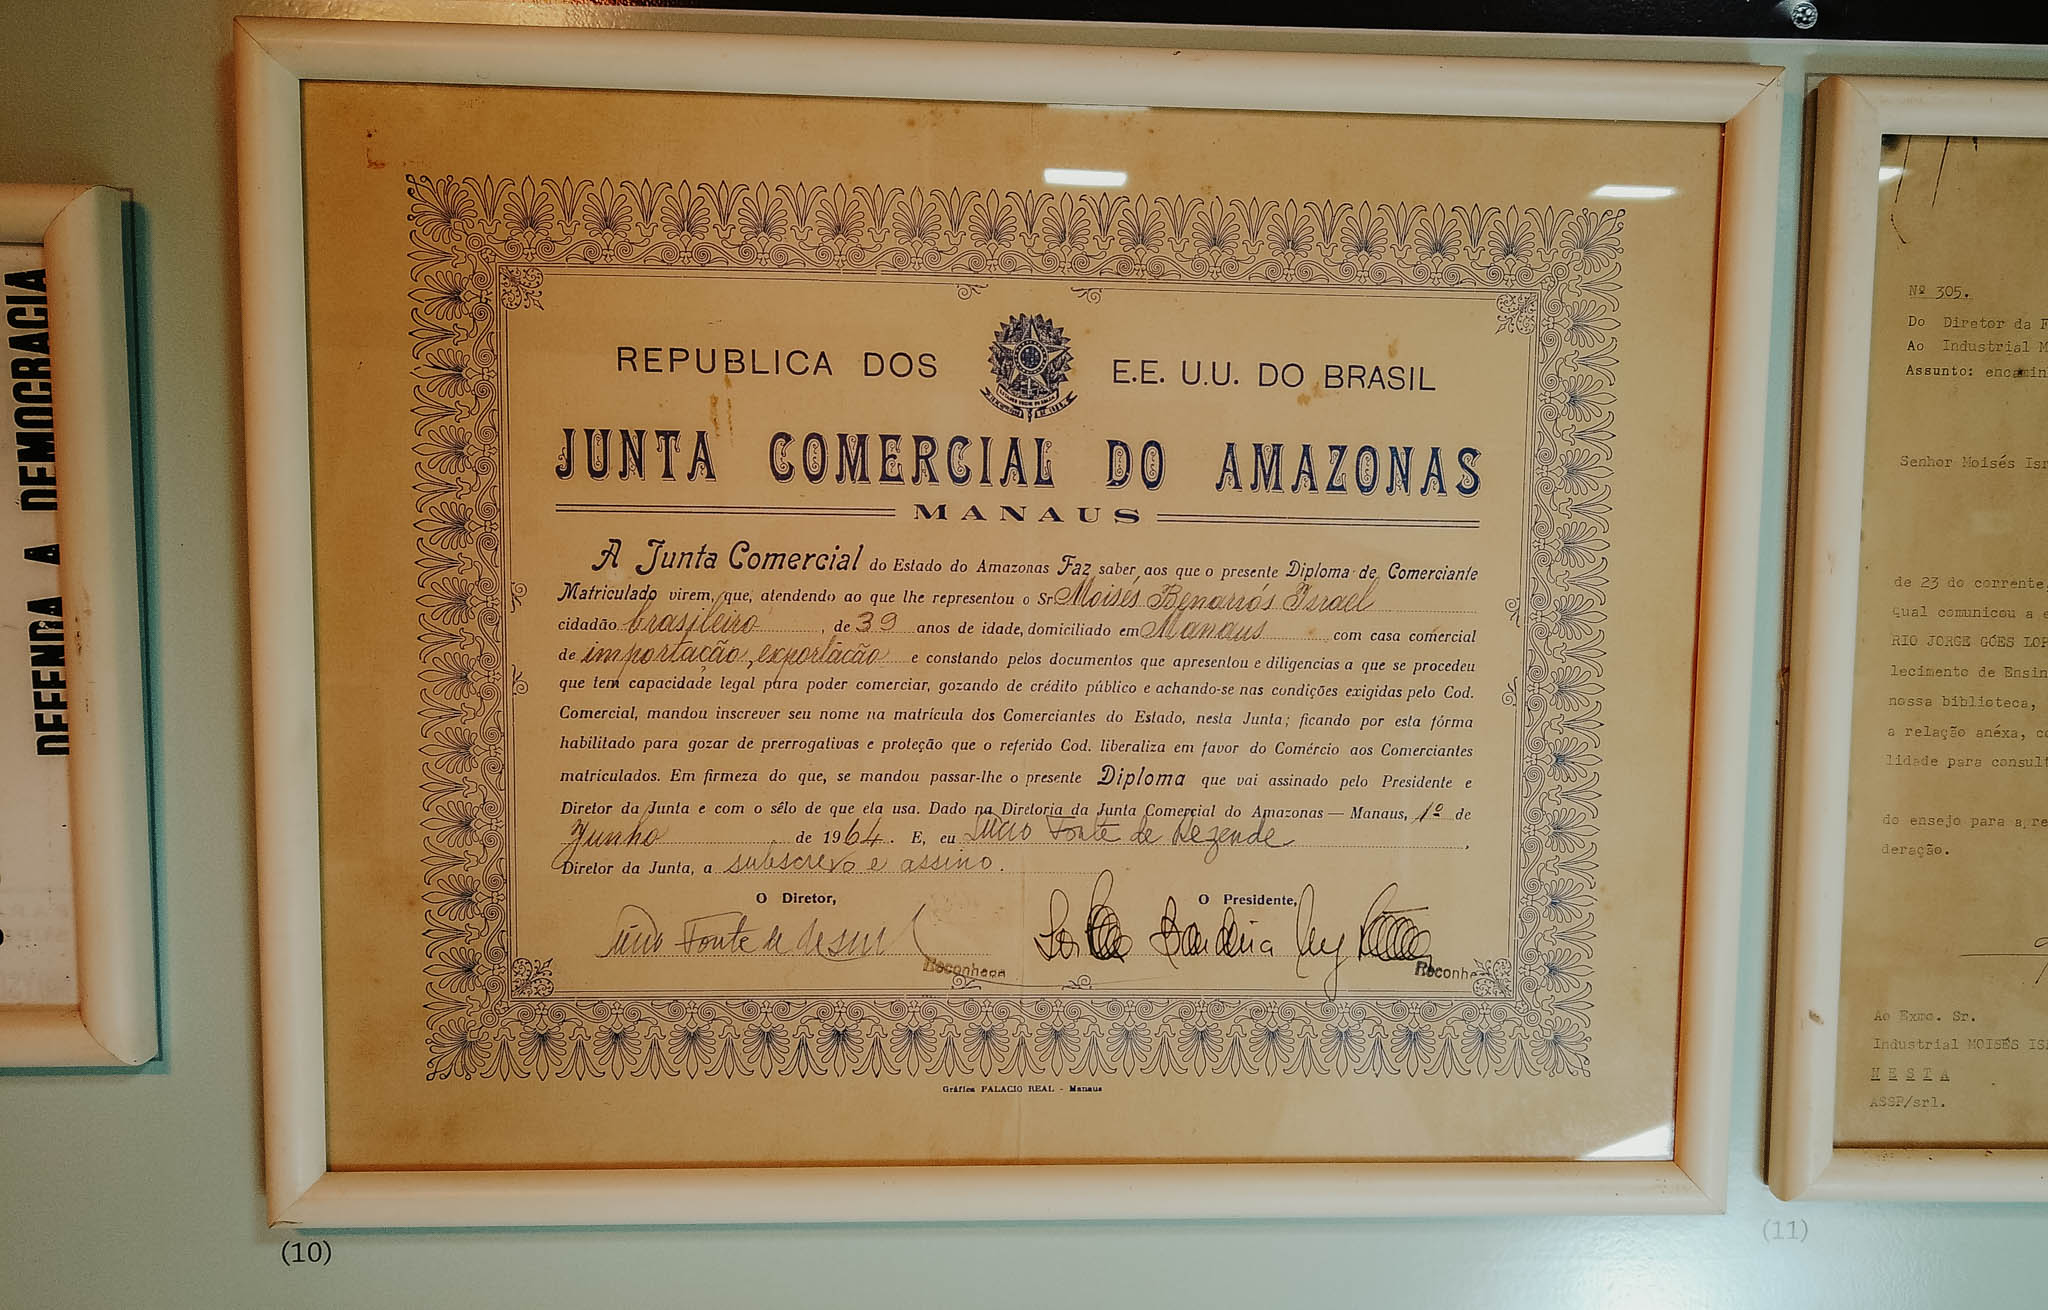 DEFENDA A DEMOCRACIA
REPUBLICA DOS E.E. U.U. DO BRASIL
JUNTA COMERCIAL DO AMAZONAS
MANAUS
A Junta Comercial do Estado do Amazonas Faz saber aos que o presente Diploma de Comerciante
Matriculado virem, que, atendendo ao que lhe representou o Sr Moisés Benarrós Israel
cidadão brasileiro, de 39 anos de idade, domiciliado em Manaus com casa comercial
de importação, exportacão e constando pelos documentos que apresentou e diligencias a que se procedeu
que tem capacidade legal para poder comerciar, gozando de crédito público e achando-se nas condições exigidas pelo Cod.
Comercial, mandou inscrever seu nome na matrícula dos Comerciantes do Estado, nesta Junta; ficando por esta fórma
habilitado para gozar de prerrogativas e proteção que o referido Cod. liberaliza em favor do Comércio aos Comerciantes
matriculados. Em firmeza do que, se mandou passar-lhe o presente Diploma que vai assinado pelo Presidente e
Diretor da Junta e com o sêlo de que ela usa. Dado na Diretoria da Junta Comercial do Amazonas — Manaus, 1º de
Junho de 1964. E, eu Lúcio Fonte de Rezende,
Diretor da Junta, a subscrevo e assino.
O Diretor, O Presidente,
Lúcio Fonte de
Reconhece Reconhe
Gráfica PALACIO REAL - Manaus
(10)
Nº 305.
Do Diretor da F
Ao Industrial M
Assunto: encamin
Senhor Moisés Isr
de 23 do corrente,
qual comunicou a e
RIO JORGE GÓES LOP
lecimento de Ensin
nossa biblioteca,
a relação anéxa, co
lidade para consult
do ensejo para a re
deração.
Ao Exmo. Sr.
Industrial MOISÉS ISR
NESTA
ASSP/srl.
(11)